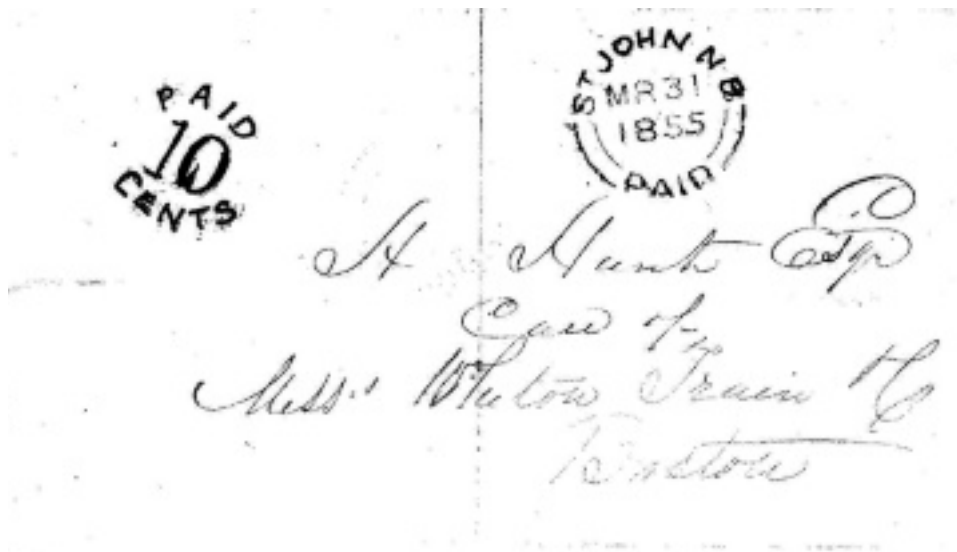 PAID
10
CENTS
ST JOHN N B
MR 31
1855
PAID
H Hunt Esqr
Care of
Messrs Train & Co
Boston